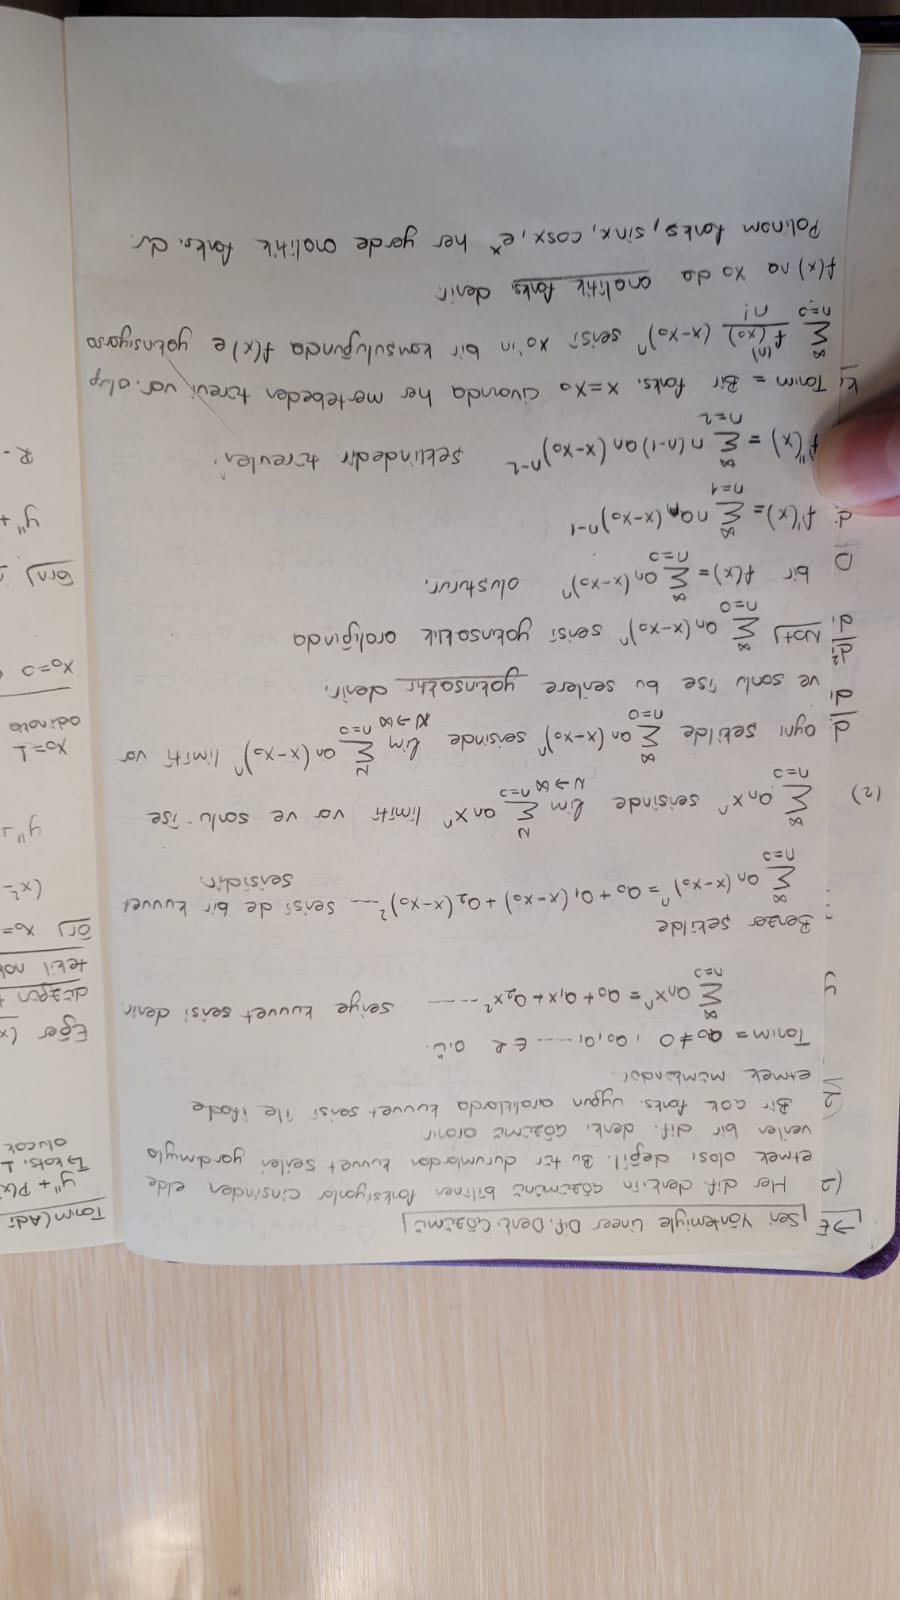 Seri Yöntemiyle Lineer Dif. Denk. Çözümü
Her dif. denk.in çözümünü bilinen fonksiyonlar cinsinden elde
etmek olası değil. Bu tür durumlardan kuvvet serileri yardımıyla
verilen bir dif. denk. çözümü aranır.
Bir çok fonks. uygun aralıklarda kuvvet serisi ile ifade
etmek mümkündür.
Tanım = a₀≠0 , a₀,a₁ ..... ∈ R o.ü.
∑_{n=0}^{∞} aₙxⁿ = a₀ + a₁x + a₂x² ...... seriye kuvvet serisi denir.
Benzer şekilde
∑_{n=0}^{∞} aₙ(x-x₀)ⁿ = a₀ + a₁(x-x₀) + a₂(x-x₀)² ... serisi de bir kuvvet
serisidir.
(2) ∑_{n=0}^{∞} aₙxⁿ serisinde lim_{N→∞} ∑_{n=0}^{N} aₙxⁿ limiti var ve sonlu ise
aynı şekilde ∑_{n=0}^{∞} aₙ(x-x₀)ⁿ serisinde lim_{N→∞} ∑_{n=0}^{N} aₙ(x-x₀)ⁿ limiti var
ve sonlu ise bu serilere yakınsaktır denir.
Not) ∑_{n=0}^{∞} aₙ(x-x₀)ⁿ serisi yakınsaklık aralığında
bir f(x) = ∑_{n=0}^{∞} aₙ(x-x₀)ⁿ oluşturur.
f'(x) = ∑_{n=1}^{∞} naₙ(x-x₀)ⁿ⁻¹
f''(x) = ∑_{n=2}^{∞} n(n-1)aₙ(x-x₀)ⁿ⁻² şeklindedir. türevleri.
Tanım = Bir fonks. x=x₀ civarında her mertebeden türevi var. olup
∑_{n=0}^{∞} f⁽ⁿ⁾(x₀)/n! (x-x₀)ⁿ serisi x₀'ın bir komşuluğunda f(x)e yakınsıyorsa
f(x) na x₀ da analitik fonks. denir.
Polinom fonks, sinx, cosx, eˣ her yerde analitik fonks. dır.
Tanım (Adi
y'' + P(x)
↳ kats. 1
olucak
Eğer (x
düzgün
tekil nok
Ör) x₀=
(x²-
y''
x₀=1
adi nokta
x₀=0
Örn)
y'' +
R -